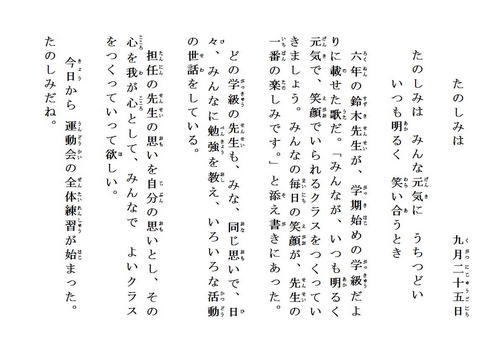 たのしみは　　　　九月二十五日
たのしみは　みんな元気に　うちつどい
いつも明るく　笑い合うとき
六年の鈴木先生が、学期始めの学級だよ
りに載せた歌だ。「みんなが、いつも明るく
元気で、笑顔でいられるクラスをつくってい
きましょう。みんなの毎日の笑顔が、先生の
一番の楽しみです。」と添え書きにあった。
どの学級の先生も、みな、同じ思いで、日
々、みんなに勉強を教え、いろいろな活動
の世話をしている。
担任の先生の思いを自分の思いとし、その
心を我が心として、みんなで　よいクラス
をつくっていって欲しい。
今日から　運動会の全体練習が始まった。
たのしみだね。